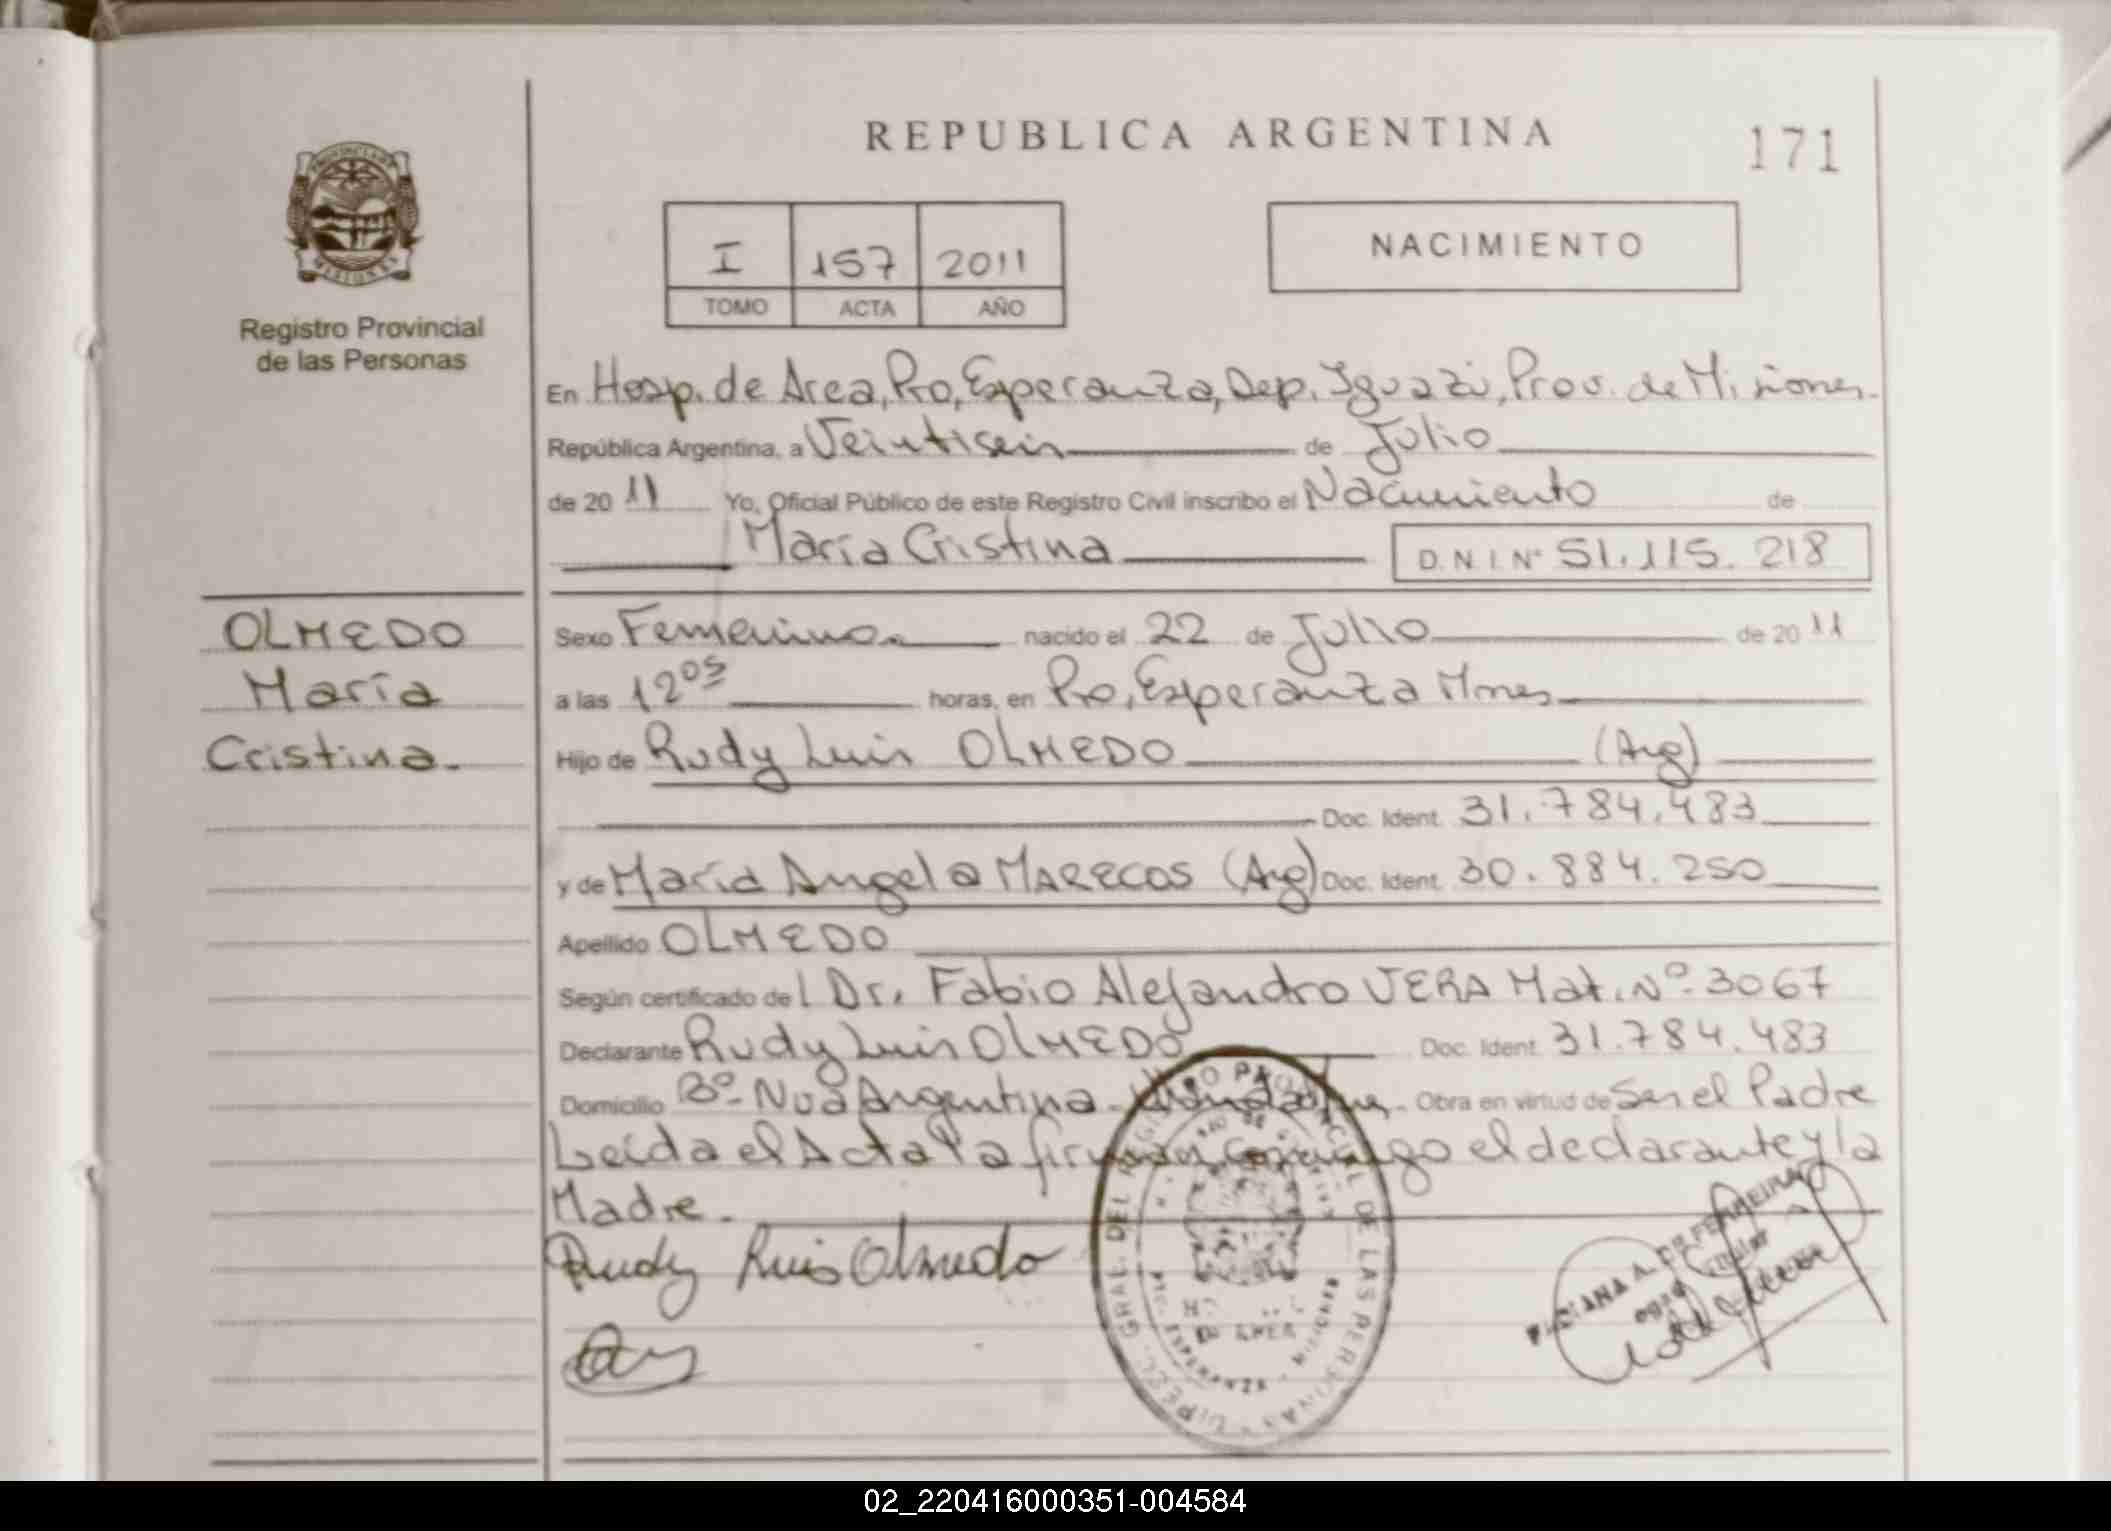 REPUBLICA ARGENTINA
171
PROVINCIA DE
MISIONES
Registro Provincial
de las Personas
I 157 2011
TOMO ACTA AÑO
NACIMIENTO
En Hosp. de Area, Pto, Esperanza, Dep. Iguazú, Prov. de Misiones.
República Argentina, a Veintiseis de Julio
de 20 11 Yo, Oficial Público de este Registro Civil inscribo el Nacimiento de
María Cristina D.N.I. Nº 51.115.218
OLMEDO
María
Cristina.
Sexo Femenino. nacido el 22 de Julio de 20 11
a las 12⁰⁵ horas, en Pto, Esperanza Mnes
Hijo de Rudy Luis OLMEDO (Arg)
Doc. Ident. 31.784.483
y de María Angela MARECOS (Arg) Doc. Ident. 30.884.250
Apellido OLMEDO
Según certificado del Dr. Fabio Alejandro VERA Mat. Nº 3067
Declarante Rudy Luis OLMEDO Doc. Ident. 31.784.483
Domicilio Bº Nva Argentina - Obra en virtud de Ser el Padre
Leída el Acta la firman conmigo el declarante y la
Madre.
Rudy Luis Olmedo
GRAL. DEL REGISTRO PROVINCIAL DE LAS PERSONAS
DE AREA
PTO. ESPERANZA - MISIONES
02_220416000351-004584